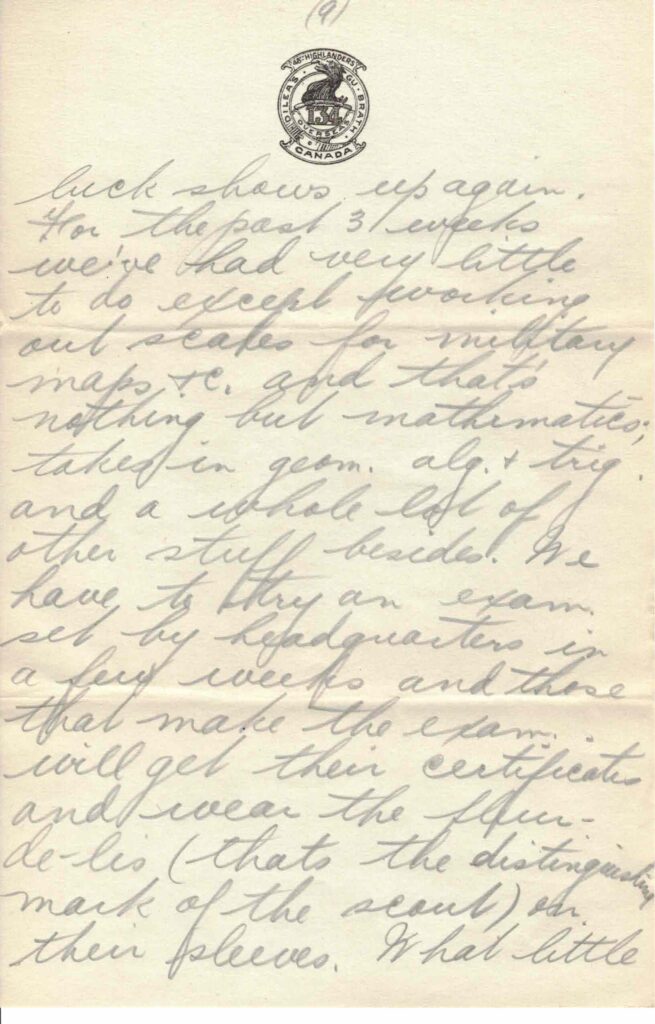 (9)
48TH HIGHLANDERS
DILEAS GU BRATH
134
OVERSEAS
CANADA
luck shows up again.
For the past 3 weeks
we've had very little
to do except working
out scales for military
maps &c. and that's
nothing but mathematics;
takes in geom. alg. & trig.
and a whole lot of
other stuff besides. We
have to try an exam.
set by headquarters in
a few weeks and those
that make the exam.
will get their certificates
and wear the fleur-
de-lis (thats the distinguishing
mark of the scout) on
their sleeves. What little